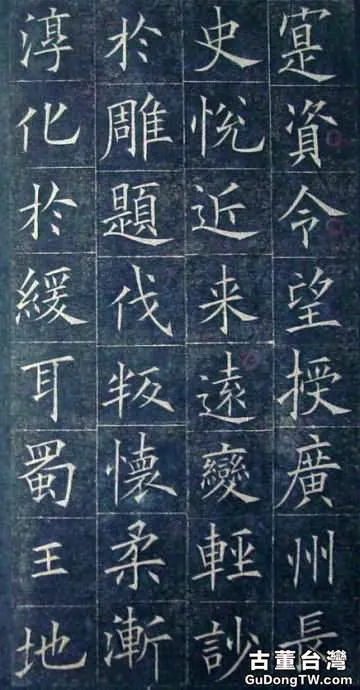 寔資令望授廣州長
史悅近来遠變輕訬
扵雕題伐叛懷柔漸
淳化扵緩耳蜀王地
古董台灣
GuDongTW.com